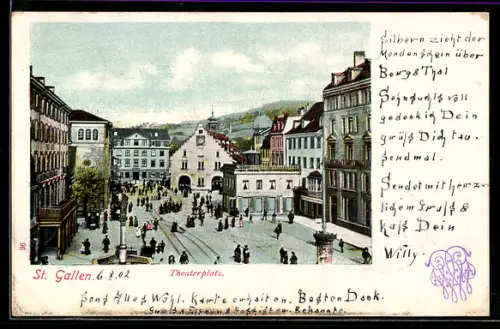 Silbern zieht der
Mondenschein über
Berg & Thal
Sehnsuchtsvoll
gedenkig Dein
grüß Dich tau-
sendmal.
Sendet mit herz-
lichem Gruß &
Kuß Dein
Willy.
96
St. Gallen. 6.8.02
Theaterplatz.
Sonst Alles Wohl. Karte erhalten. Besten Dank.
Gruß a. Eltern & Geschister. Bekannte.